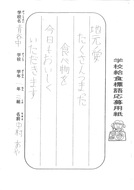 学校給食標語応募用紙
地元の愛
たくさんつまった
食べ物を
今日もおいしく
いただきます
学校名
学校
学年
年
組
名前